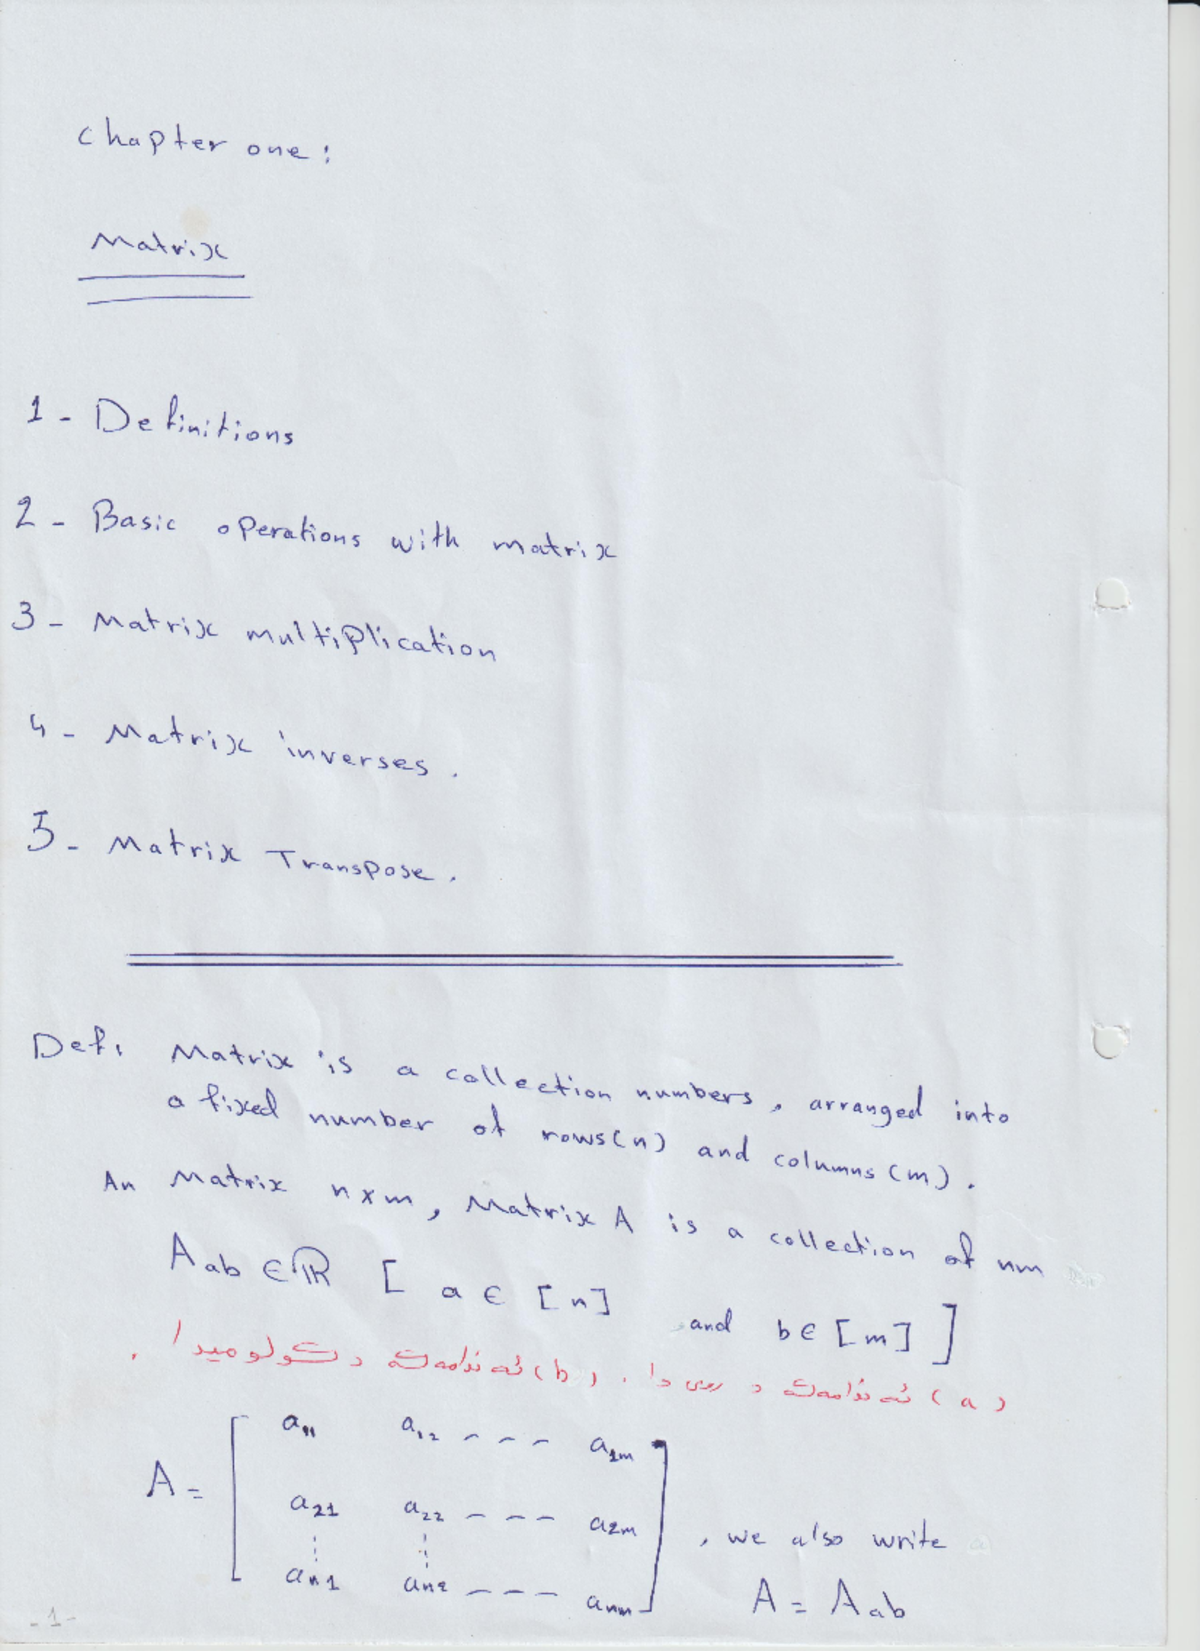 Chapter one:
Matrix
1 - Definitions
2 - Basic operations with matrix
3 - Matrix multiplication
4 - Matrix inverses.
5 - Matrix Transpose.
Def: Matrix is a collection numbers, arranged into
a fixed number of rows(n) and columns (m).
An Matrix n x m, Matrix A is a collection of nm
A_ab ∈ ℝ [ a ∈ [n] and b ∈ [m] ]
(a) ئەندامەکە د ڕیزی دا . (b) ئەندامەکە د ستوونیدا .
A = [ a11 a12 - - - a1m
a21 a22 - - - a2m , we also write
an1 an2 - - - anm ] A = A_ab
-1-